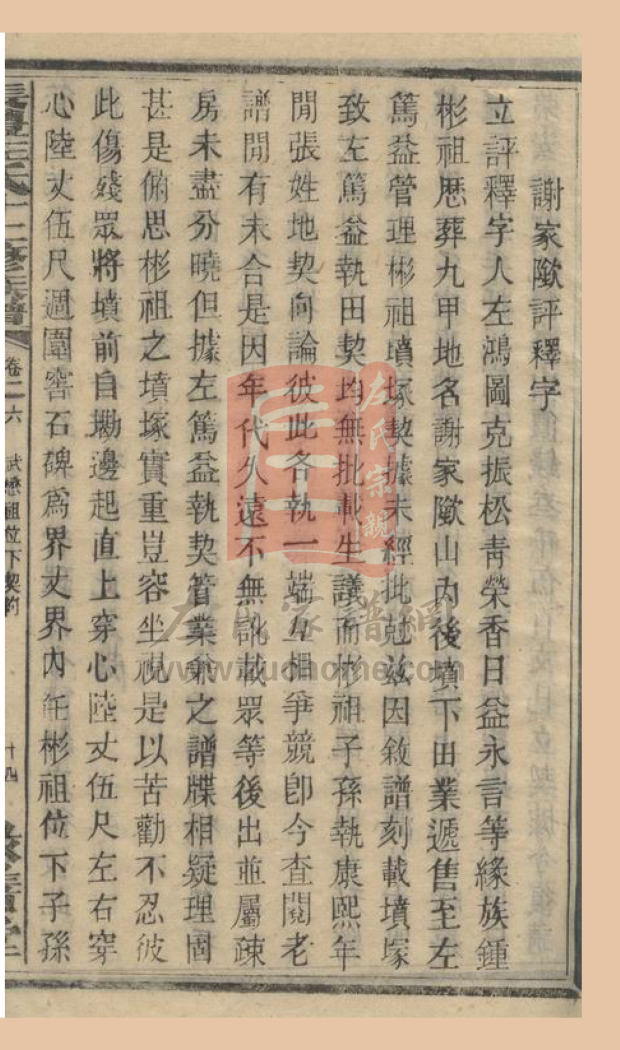 謝家歟評釋字
立評釋字人左鴻圖克振松靑榮香日益永言等緣族鍾
彬祖歷葬九甲地名謝家歟山內後墳下田業遞售至左
篤益管理彬祖墳塚契據未經批尅兹因敘譜刻載墳塚
致左篤益執田契均無批載生議而彬祖子孫執康熙年
閒張姓地契向論彼此各執一端互相爭競卽今查閱老
譜閒有未合是因年代久遠不無訛載眾等後出並屬疎
房未盡分曉但據左篤益執契管業兼之譜牒相疑理固
甚是俯思彬祖之墳塚實重豈容坐視是以苦勸不忍彼
此傷殘眾將墳前自墈邊起直上穿心陸丈伍尺左右穿
心陸丈伍尺週圍窖石碑爲界丈界內任彬祖位下子孫
卷二六
武懋祖位下契約
十四
左氏宗親
左氏家譜網
www.zuohome.com